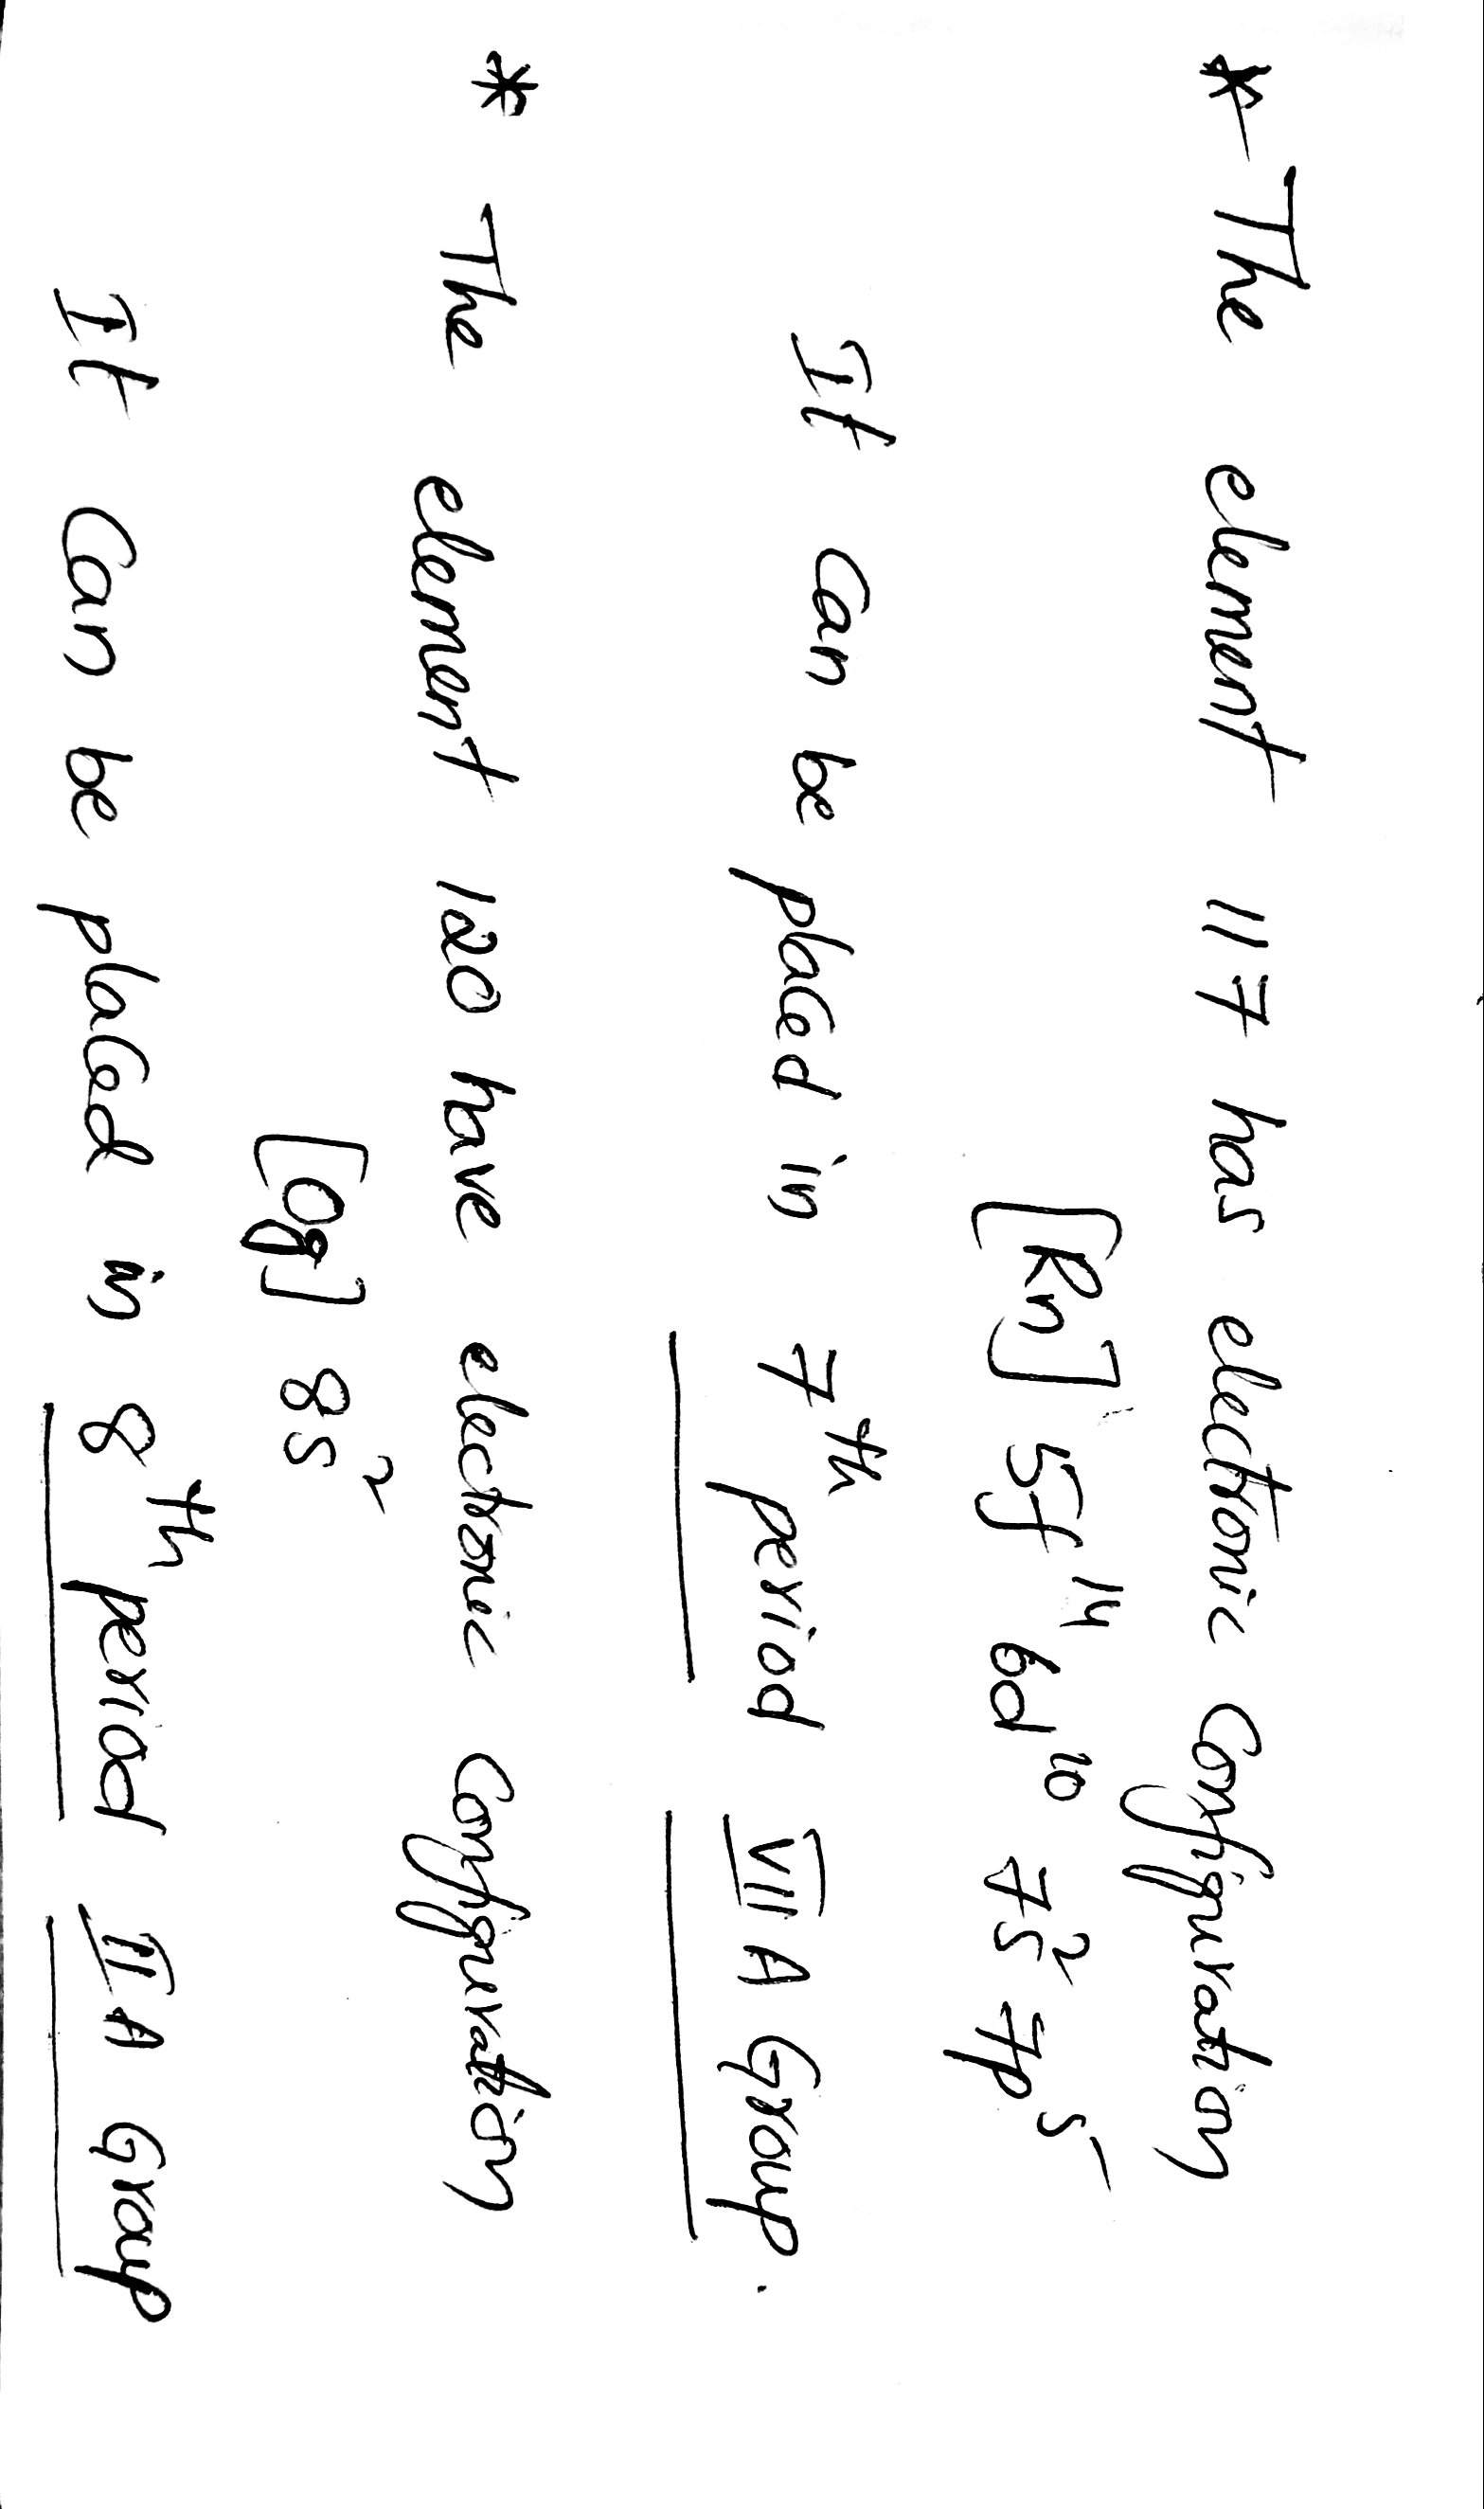 * The element 117 has electronic configuration
[Rn] 5f¹⁴ 6d¹⁰ 7s² 7p⁵
It can be placed in 7th period VII A Group.
* The element 120 have electronic configuration
[Og] 8s²
It can be placed in 8th period II A Group